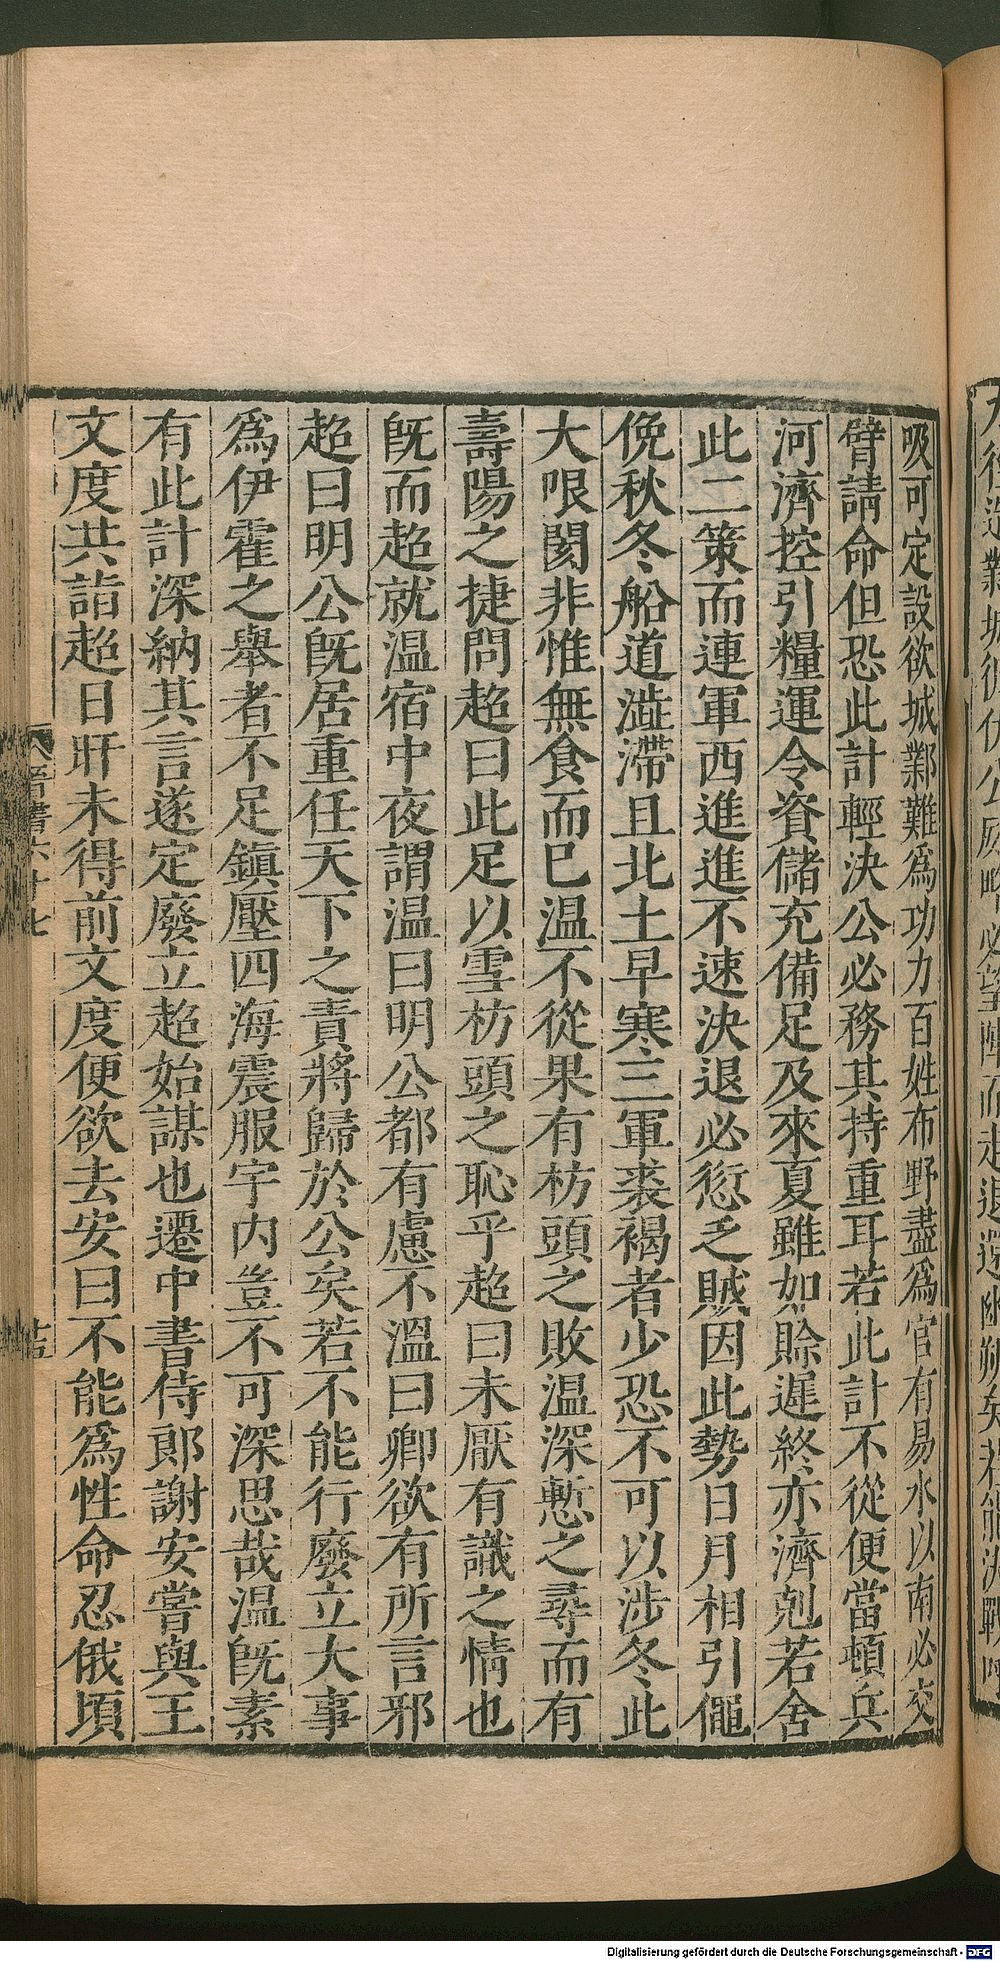 吸可定設欲城鄴難爲功力百姓布野盡爲官有易水以南必交
臂請命但恐此計輕決公必務其持重耳若此計不從便當頓兵
河濟控引糧運令資儲充備足及來夏雖如賒遲終亦濟剋若舍
此二策而連軍西進進不速決退必愆乏賊因此勢日月相引僶
俛秋冬船道澁滯且北土早寒三軍裘褐者少恐不可以涉冬此
大哏閡非惟無食而已温不從果有枋頭之敗温深慙之尋而有
壽陽之捷問超曰此足以雪枋頭之恥乎超曰未厭有識之情也
旣而超就温宿中夜謂温曰明公都有慮不溫曰卿欲有所言邪
超曰明公旣居重任天下之責將歸於公矣若不能行廢立大事
爲伊霍之舉者不足鎭壓四海震服宇内豈不可深思哉温旣素
有此計深納其言遂定廢立超始謀也遷中書侍郎謝安嘗與王
文度共詣超日旰未得前文度便欲去安曰不能爲性命忍俄頃
晉書六十七
Digitalisierung gefördert durch die Deutsche Forschungsgemeinschaft - DFG